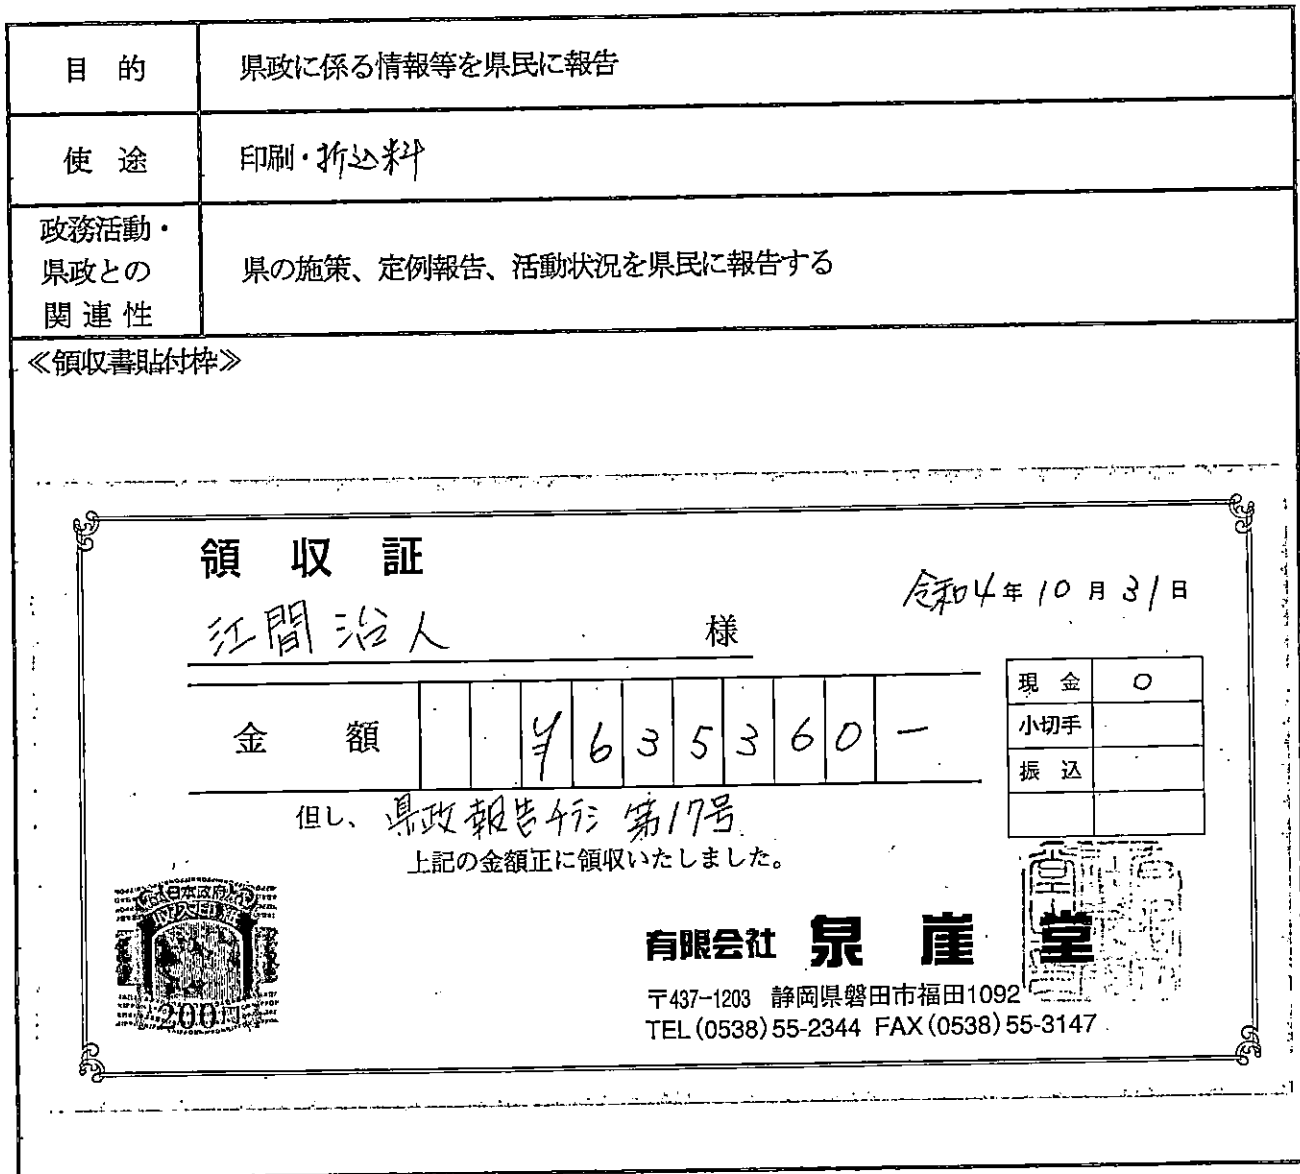 目 的
県政に係る情報等を県民に報告
使 途
印刷・折込料
政務活動・
県政との
関連性
県の施策、定例報告、活動状況を県民に報告する
≪領収書貼付枠≫
領 収 証
令和4年10月31日
江間治人 様
現 金 0
小切手
振 込
金 額 ¥635360-
但し、県政報告チラシ 第17号
上記の金額正に領収いたしました。
日本政府
収入印紙
200円
有限会社 泉崖堂
〒437-1203 静岡県磐田市福田1092
TEL(0538)55-2344 FAX(0538)55-3147